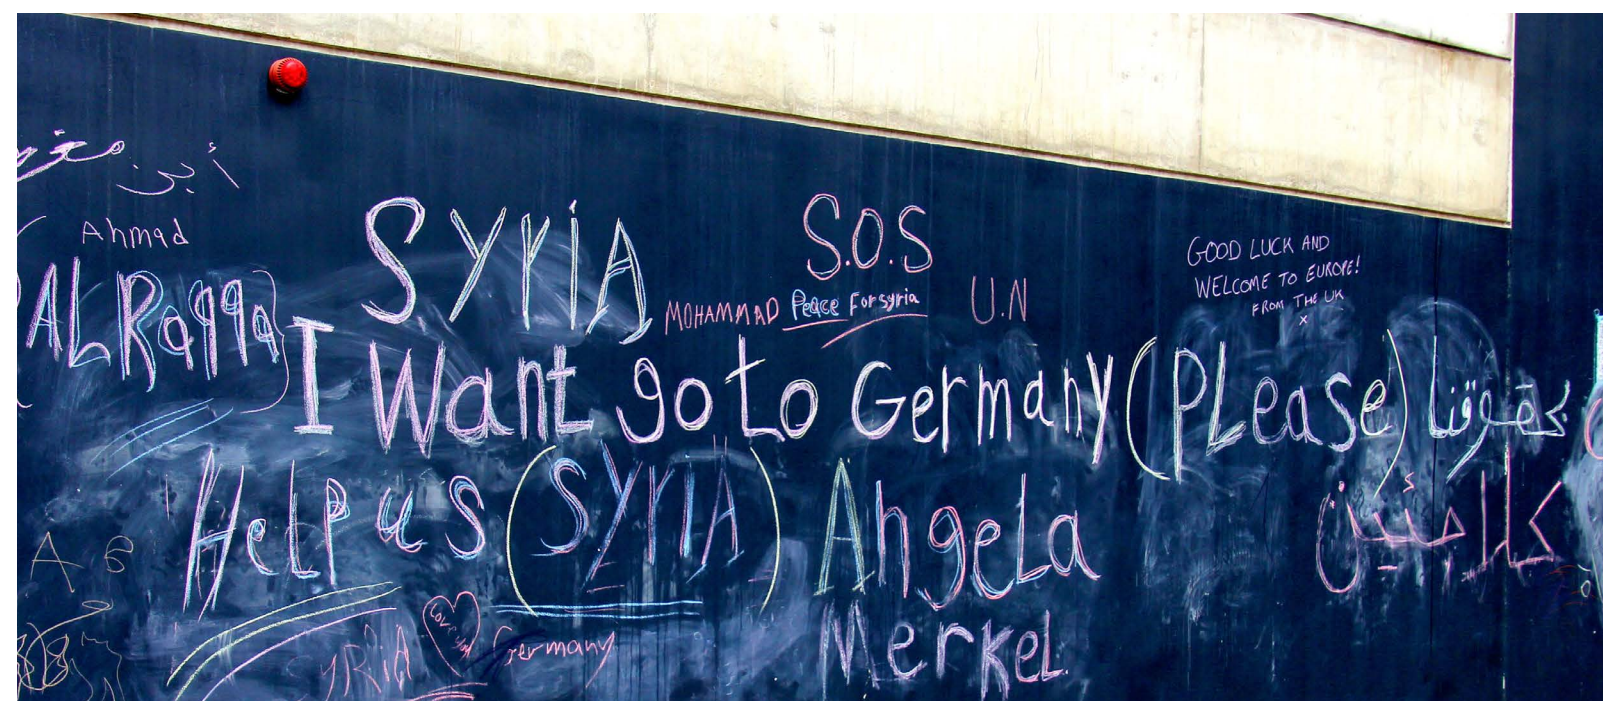 أين
Ahmad
AL Raqqa
SYRiA
S.O.S
MOHAMMAD
Peace For syria
U.N
GOOD LUCK AND
WELCOME TO EUROPE!
FROM THE UK
X
I Want go to Germany (PLease)
حقوقنا
HeLp us (SYRIA) AngeLa
كلاجئين
MerKeL
A 6
SYRiA
Germany